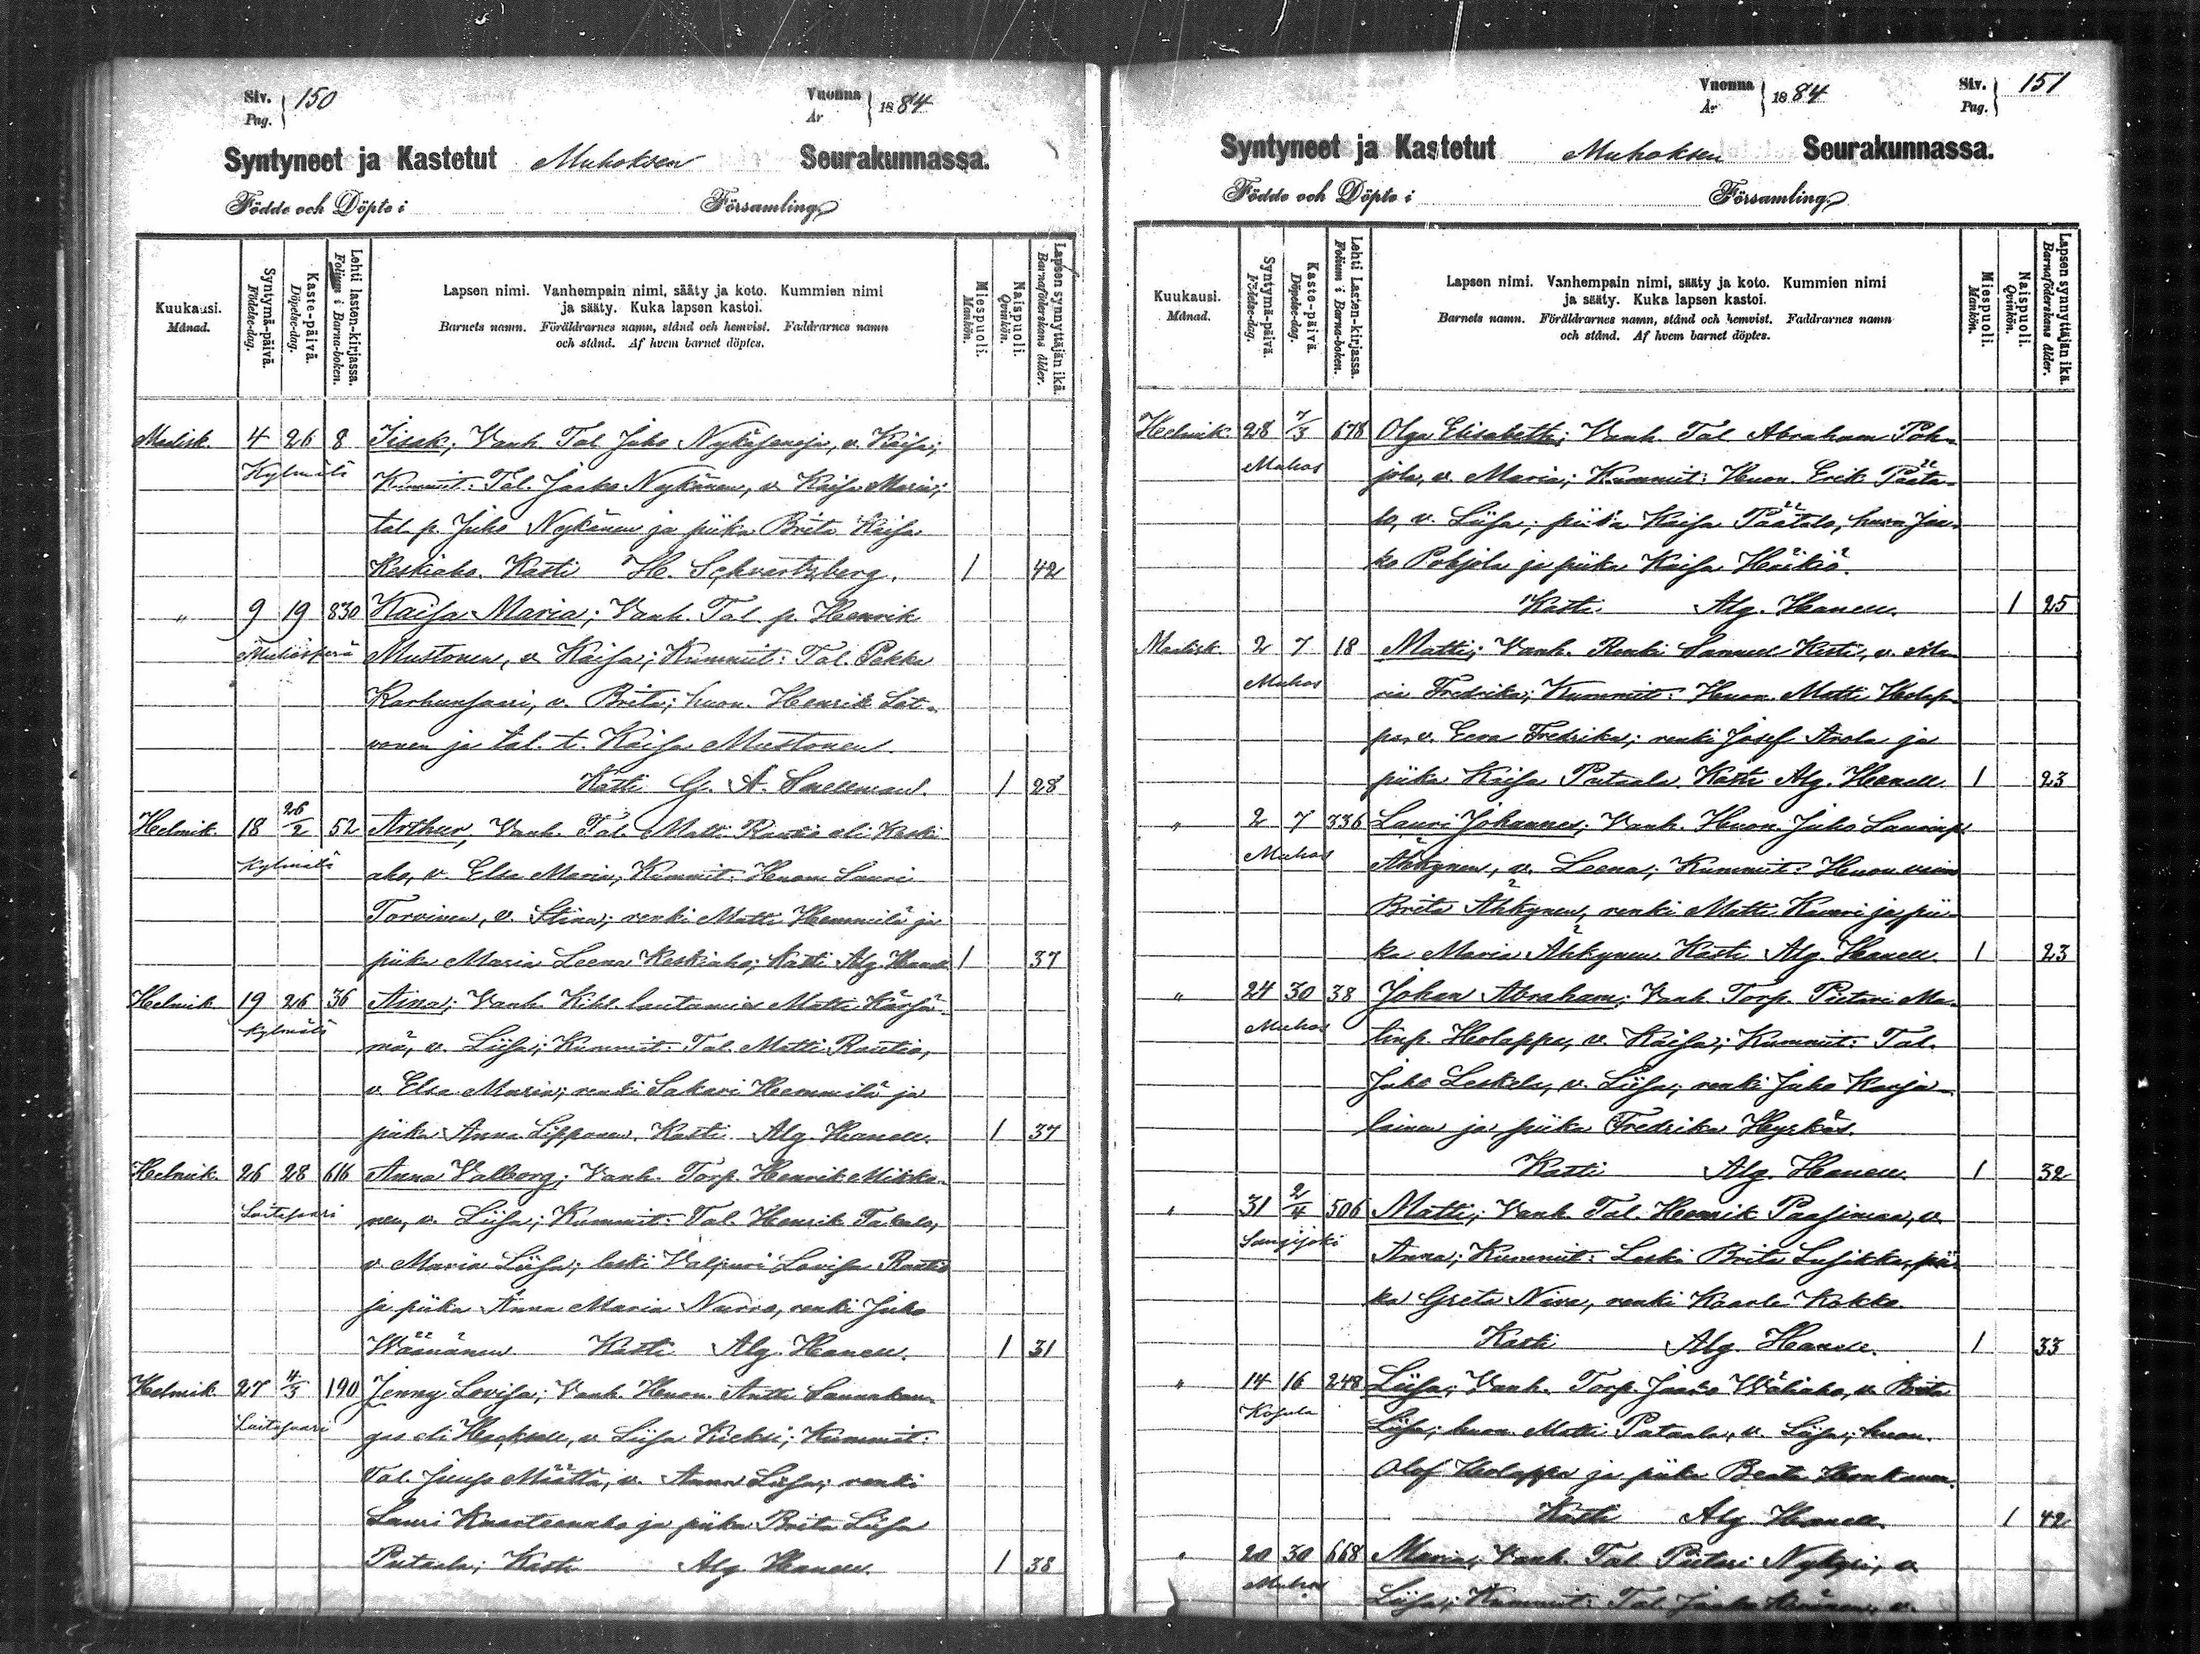 Siv. Pag. 150
Vuonna År 1884
Syntyneet ja Kastetut Muhoksen Seurakunnassa.
Födde och Döpte i Församling
Kuukausi. Månad.
Syntymä-päivä. Födelse-dag.
Kaste-päivä. Döpelse-dag.
Lehti lasten-kirjassa. Folium i Barna-boken.
Lapsen nimi. Vanhempain nimi, sääty ja koto. Kummien nimi
ja sääty. Kuka lapsen kastoi.
Barnets namn. Föräldrarnes namn, stånd och hemvist. Faddrarnes namn
och stånd. Af hvem barnet döptes.
Miespuoli. Mankön.
Naispuoli. Qvinkön.
Lapsen synnyttäjän ikä. Barnaföderskans ålder.
Maalisk. 4 26 8 Iisak; Vanh. Tal. Juho Nykäsenoja, v. Kaisa;
Kylmälä Kummit: Tal. Jaako Nykänen, v. Kaisa Maria;
tal. p. Juho Nykänen ja piika Brita Kaisa
Keskiaho. Kasti H. Schwartzberg. 1 42
" 9 19 830 Kaisa Maria; Vanh. Tal. p. Henrik
Muhosperä Mustonen, v. Kaisa; Kummit: Tal. Pekka
Karhunsaari, v. Brita; huon. Henrik Lat-
vonen ja tal. t. Kaisa Mustonen.
Kasti G. A. Snellman. 1 28
Helmik. 18 26/2 52 Arthur, Vanh. Tal. Matti Rautio eli Keski-
Kylmälä aho, v. Elsa Maria; Kummit: Huon. Lauri
Torvinen, v. Stina; renki Matti Hemmilä ja
piika Maria Leena Keskiaho; Kasti Alg. Hanell 1 37
Helmik. 19 26 36 Aina; Vanh. Kihl. lautamies Matti Käsjä-
Kylmälä mä, v. Liisa; Kummit: Tal. Matti Rautio,
v. Elsa Maria; renki Sakari Hemmilä ja
piika Anna Lipponen. Kasti Alg. Hanell. 1 37
Helmik. 26 28 616 Anna Valborg; Vanh. Torp. Henrik Mikko-
Laitasaari nen, v. Liisa; Kummit: Tal. Henrik Takalo,
v. Maria Liisa; leski Valpuri Lovisa Rautio
ja piika Anna Maria Nurro, renki Juho
Wäänänen Kasti Alg. Hanell. 1 31
Helmik. 27 4/3 190 Jenny Lovisa; Vanh. Huon. Antti Sannakan-
Laitasaari gas eli Hacksell, v. Liisa Kiekki; Kummit:
Tal. Juuso Määttä, v. Anna Liisa; renki
Lauri Knaateenaho ja piika Brita Liisa
Pietaala; Kasti Alg. Hanell. 1 38
Vuonna År 1884
Siv. Pag. 151
Syntyneet ja Kastetut Muhoksen Seurakunnassa.
Födde och Döpte i Församling
Kuukausi. Månad.
Syntymä-päivä. Födelse-dag.
Kaste-päivä. Döpelse-dag.
Lehti Lasten-kirjassa. Folium i Barna-boken.
Lapsen nimi. Vanhempain nimi, sääty ja koto. Kummien nimi
ja sääty. Kuka lapsen kastoi.
Barnets namn. Föräldrarnes namn, stånd och hemvist. Faddrarnes namn
och stånd. Af hvem barnet döptes.
Miespuoli. Mankön.
Naispuoli. Qvinkön.
Lapsen synnyttäjän ikä. Barnaföderskans ålder.
Helmik. 28 7/3 678 Olga Elisabeth; Vanh. Tal. Abraham Poh-
Muhos jola, v. Maria; Kummit: Huon. Erik Pääta-
lo, v. Liisa; piika Kaisa Päätalo, huon. Jaa-
ko Pohjola ja piika Kaisa Häikiö.
Kasti Alg. Hanell. 1 25
Maalisk. 2 7 18 Matti; Vanh. Renki Samuel Kesti, v. Ma-
Muhos ria Fredrika; Kummit: Huon. Matti Holap-
pa, v. Eeva Fredrika; renki Josef Arola ja
piika Kaisa Pietaala. Kasti Alg. Hanell. 1 23
" 2 7 336 Lauri Johannes; Vanh. Huon. Juho Laurinp.
Muhos Ähkynen, v. Leena; Kummit: Huon. vaimo
Brita Ähkynen, renki Matti Kauri ja pii-
ka Maria Ähkynen. Kasti Alg. Hanell. 1 23
" 24 30 38 Johan Abraham; Vanh. Torp. Pietari Ma-
Muhos tinp. Holappa, v. Kaisa; Kummit: Tal.
Juho Leskelä, v. Liisa; renki Juho Karja-
lainen ja piika Fredrika Hyrkäs.
Kasti Alg. Hanell. 1 32
" 31 2/4 506 Matti; Vanh. Tal. Henrik Paasimaa, v.
Sanginjoki Anna; Kummit: Leski Brita Lusikka, pii-
ka Greta Niva, renki Kaarle Kokko.
Kasti Alg. Hanell. 1 33
" 14 16 248 Liisa; Vanh. Torp. Jaako Wäliaho, v. Brita
Kosula Liisa; huon. Matti Pietaala, v. Liisa; huon.
Olof Holappa ja piika Beata Honkanen.
Kasti Alg. Hanell. 1 42
" 20 30 668 Maria; Vanh. Tal. Pietari Nykyri, v.
Muhos Liisa; Kummit: Tal. Jaako Keränen, v.